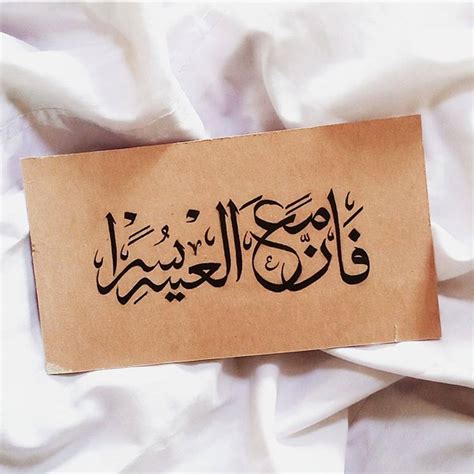 فَإنَّ مَعَ الْعُسْرِ يُسْرًا